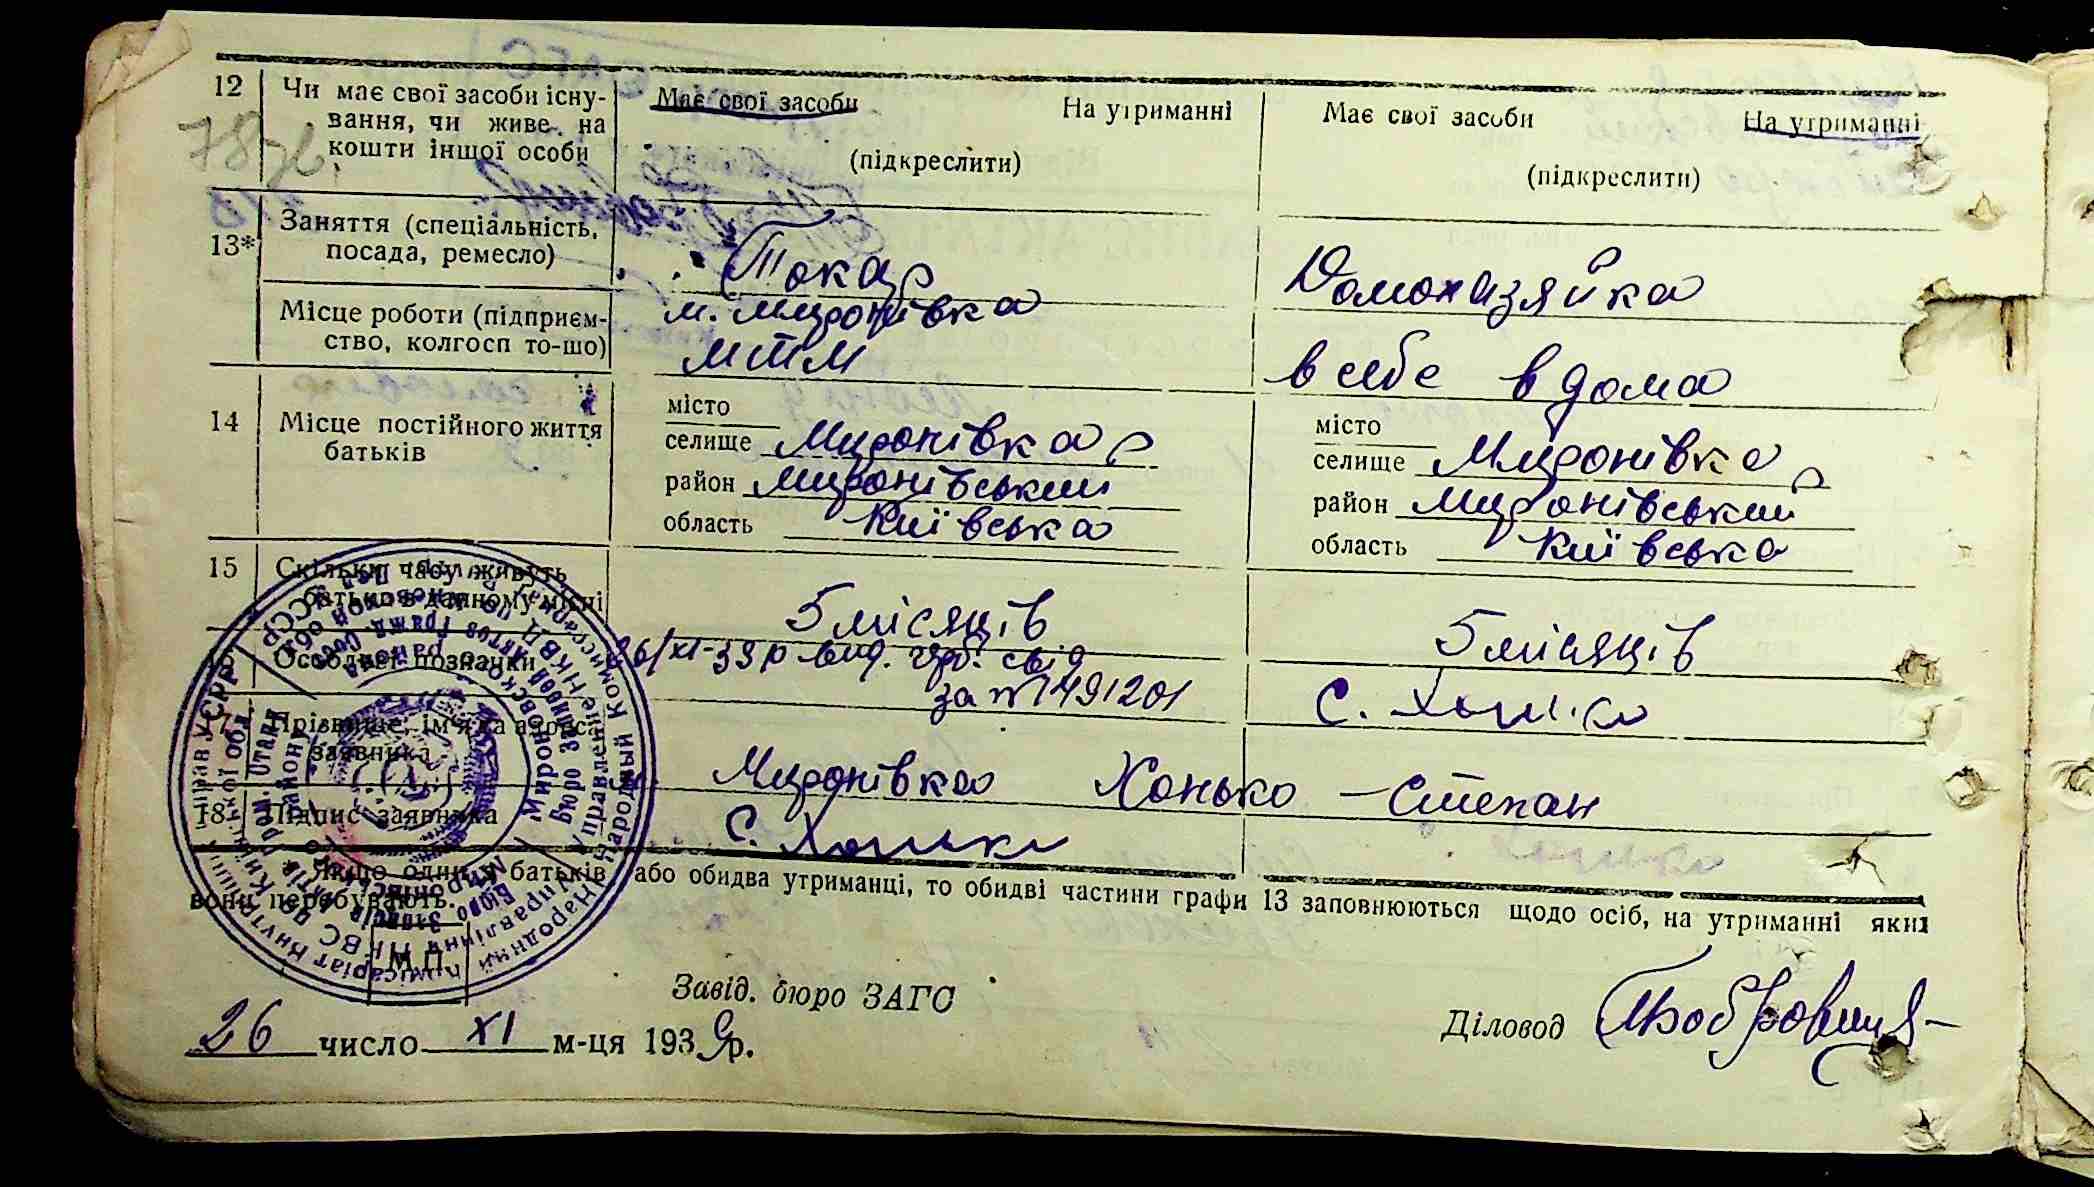 12 Чи має свої засоби існу-
вання, чи живе на
кошти іншої особи
Має свої засоби На утриманні
(підкреслити)
Має свої засоби На утриманні
(підкреслити)
13* Заняття (спеціальність,
посада, ремесло)
Токар
Домохазяйка
Місце роботи (підприєм-
ство, колгосп то-що)
м. Миронівка
МТМ
в себе вдома
14 Місце постійного життя
батьків
місто
селище Миронівка
район Миронівський
область Київська
місто
селище Миронівка
район Миронівський
область Київська
15 Скільки часу живуть
батьки в данному місці
5 місяців
5 місяців
Особливі позначки
26/XI-39 р вид. свід
за № 1491201
С. Хонько
17 Прізвище, ім'я та адреса
заявника
Миронівка Хонько - Степан
18 Підпис заявника
С. Хонько
Якщо один з батьків або обидва утриманці, то обидві частини графи 13 заповнюються щодо осіб, на утриманні яких
вони перебувають.
М. П.
Завід. бюро ЗАГС
Діловод
26 число XI м-ця 1939 р.